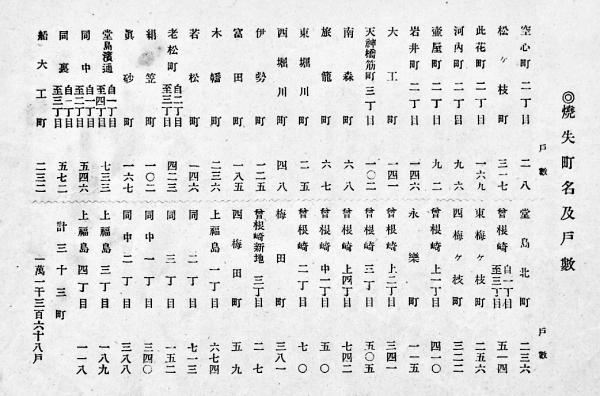 ◎燒失町名及戸數
戸數
空心町二丁目 二八
松ヶ枝町 三一七
此花町二丁目 一六九
河內町二丁目 九六
壺屋町二丁目 九二
岩井町二丁目 一四六
大工町 一四一
天神橋筋町三丁目 一〇二
南森町 六八
旅籠町 六七
東堀川町 二五
西堀川町 四八
伊勢町 一二五
富田町 一八五
木幡町 二三六
若松町 一四六
老松町自二丁目至三丁目 四二三
絹笠町 一〇二
眞砂町 一六七
堂島濱通自一丁目至四丁目 七三三
同中自一丁目至二丁目 五四六
同裏自一丁目至三丁目 五七二
船大工町 二三二
戸數
堂島北町 二三六
曾根崎自一丁目至三丁目 五一四
東梅ヶ枝町 二五六
西梅ヶ枝町 三二二
曾根崎上一丁目 四一〇
永樂町 一一五
曾根崎上二丁目 三四一
曾根崎三丁目 五〇五
曾根崎上四丁目 七四二
曾根崎中一丁目 五〇
曾根崎二丁目 七〇
梅田町 三八一
曾根崎新地三丁目 二七
西梅田町 五九
上福島一丁目 六七四
同二丁目 七一三
同三丁目 一五二
同中一丁目 三四〇
同中二丁目 三八八
上福島三丁目 一八九
上福島四丁目 一一八
計三十三町
一萬一千三百六十八戸